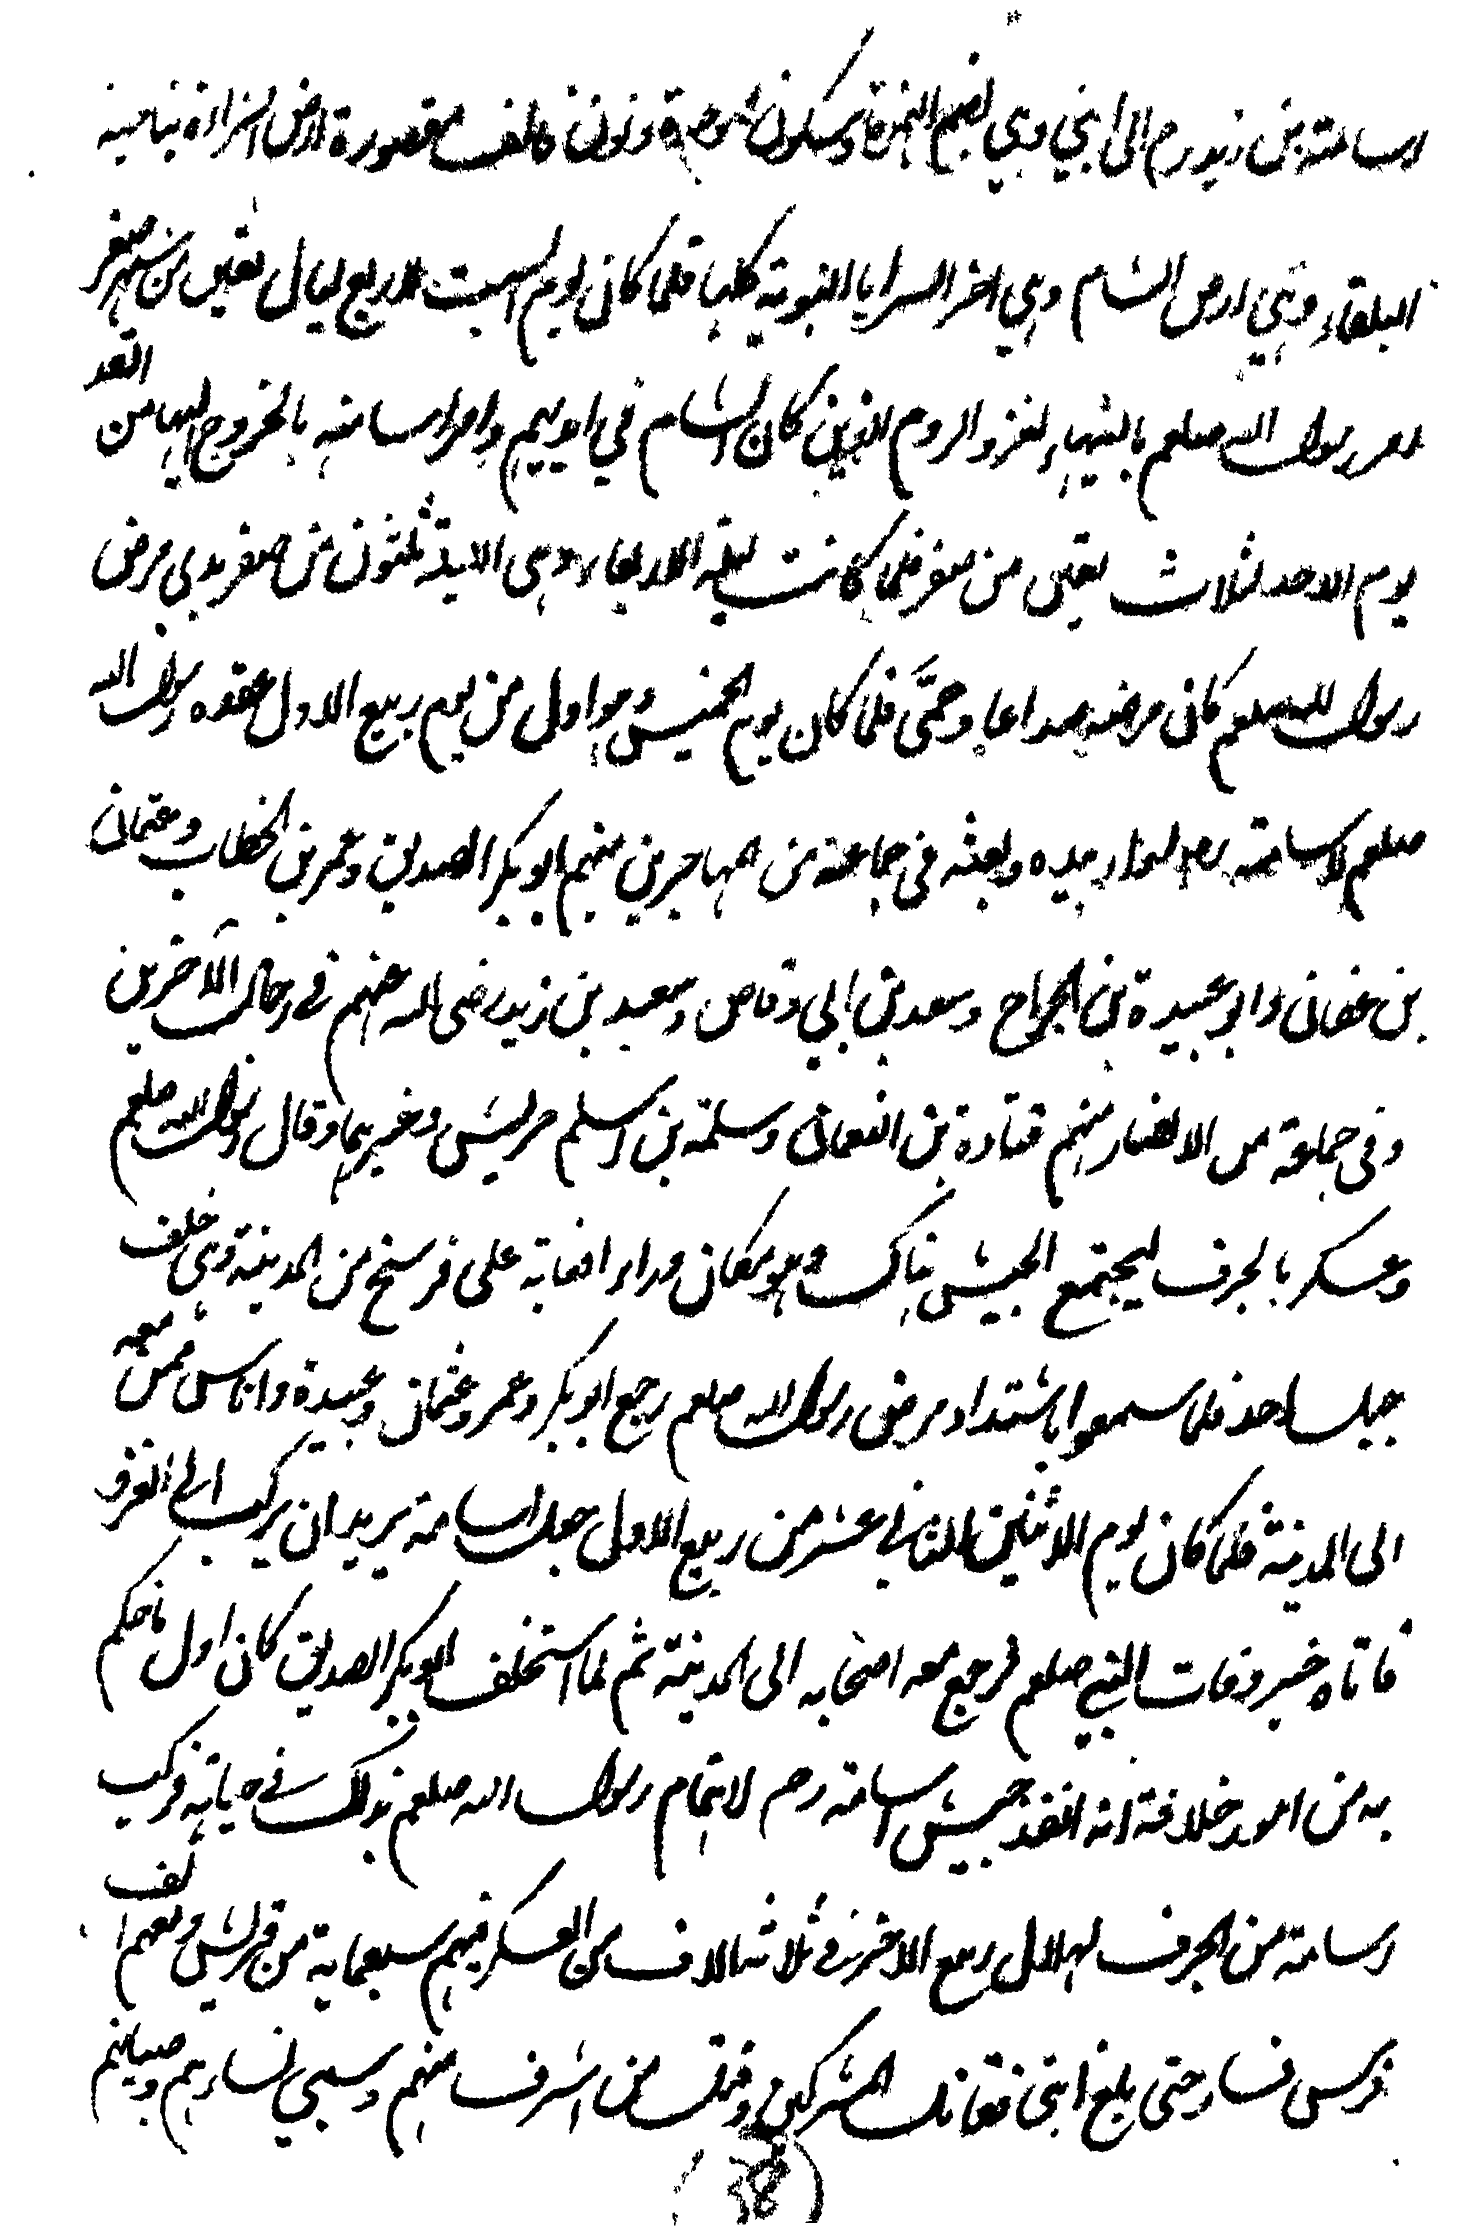 اسامة بن زيد رم الى ابني وهي بضم الهمزة وسكون موحدة ونون فالف مقصورة ارض السراة بناحية
البلقاء وهي ارض الشام وهي اخر السرايا النبوية كلها فلما كان يوم السبت لاربع ليال بقين من شهر صفر
امر رسول الله صلعم بالتهياء لغزو الروم الذين كان الشام في ايديهم وامر اسامة بالخروج اليها من الغد
يوم الاحد لثلاث بقين من صفر فلما كانت ليلة الاربعاء وهي الليلة ثلثون من صفر بدي مرض
رسول الله صلعم كان مرضه صداعا وحمّى فلما كان يوم الخميس وهو اول من يوم ربيع الاول عقده رسول الله
صلعم لاسامة لواء بيده وبعثه في جماعة من مهاجرين منهم ابو بكر الصديق وعمر بن الخطاب وعثمان
بن عفان وابو عبيدة بن الجراح وسعد بن ابي وقاص وسعيد بن زيد رضى الله عنهم في رجال آلاخرين
وفى جماعة من الانصار منهم قتادة بن النعمان وسلمة بن اسلم حريش وغيرهما وقال رسول الله صلعم
وعسكر بالجرف ليجتمع الجيش هناك وهو مكان وراء الغابة على فرسخ من المدينة وهى خلف
جبل احد فلما سمعوا باشتداد مرض رسول الله صلعم رجع ابو بكر وعمر وعثمان وعبيدة واناس ممن معه
الى المدينة فلما كان يوم الاثنين الثاني عشر من ربيع الاول جعل اسامة يريد ان يركب الى الغزو
فاتاه خبر وفات النبي صلعم فرجع معه اصحابه الى المدينة ثم لما استخلف ابو بكر الصديق كان اول ما حكم
به من امور خلافة انه انفذ جيش اسامة رحم لاهتمام رسول الله صلعم بذلك في حياته فركب
اسامة من الجرف لهلال ربيع الاخر في ثلاثة الاف من العسكر فيهم سبعماية من قريش ومعهم الف
فرس فسار حتى بلغ ابنى فقاتل المشركين وقتل من اشرف منهم وسبي نساءهم وصبيانهم